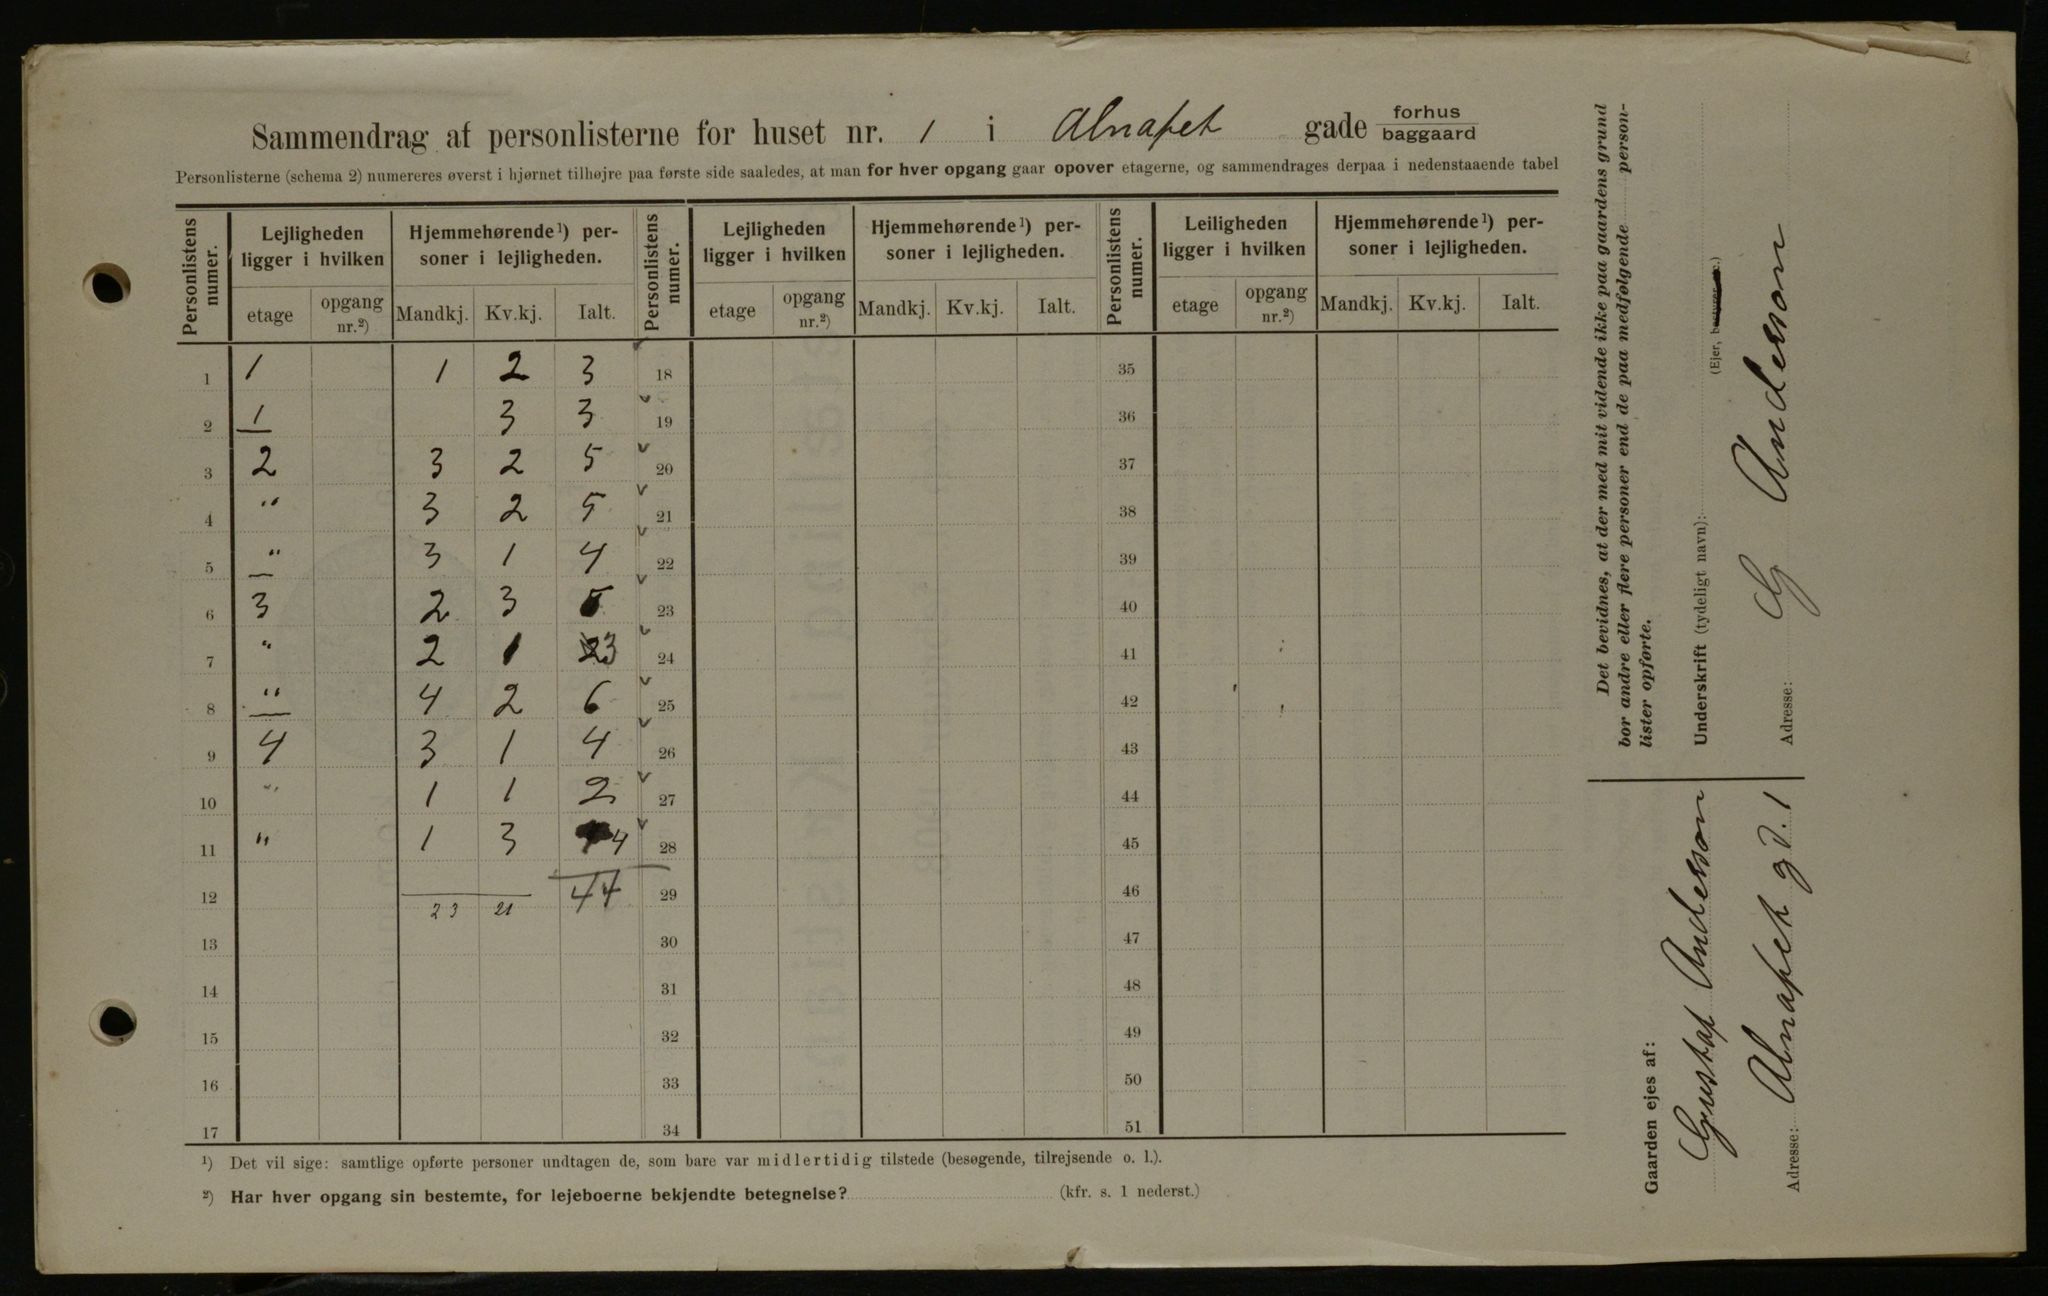 Sammendrag af personlisterne for huset nr. 1 i Alnafet gade forhus
baggaard
Personlisterne (schema 2) numereres øverst i hjørnet tilhøjre paa første side saaledes, at man for hver opgang gaar opover etagerne, og sammendrages derpaa i nedenstaaende tabel
Personlistens numer. Lejligheden ligger i hvilken Hjemmehørende¹) personer i lejligheden. Personlistens numer. Lejligheden ligger i hvilken Hjemmehørende¹) personer i lejligheden. Personlistens numer. Leiligheden ligger i hvilken Hjemmehørende¹) personer i lejligheden.
etage opgang nr.²) Mandkj. Kv.kj. Ialt. etage opgang nr.²) Mandkj. Kv.kj. Ialt. etage opgang nr.²) Mandkj. Kv.kj. Ialt.
1 1 1 2 3 18 35
2 1 3 3 19 36
3 2 3 2 5 20 37
4 " 3 2 5 21 38
5 " 3 1 4 22 39
6 3 2 3 5 23 40
7 " 2 1 3 24 41
8 " 4 2 6 25 42
9 4 3 1 4 26 43
10 " 1 1 2 27 44
11 " 1 3 4 28 45
12 23 21 44 29 46
13 30 47
14 31 48
15 32 49
16 33 50
17 34 51
¹) Det vil sige: samtlige opførte personer undtagen de, som bare var midlertidig tilstede (besøgende, tilrejsende o. l.).
²) Har hver opgang sin bestemte, for lejeboerne bekjendte betegnelse? (kfr. s. 1 nederst.)
Det bevidnes, at der med mit vidende ikke paa gaardens grund
bor andre eller flere personer end de paa medfølgende person-
lister opførte.
Underskrift (tydeligt navn):
(Ejer, bestyrer etc.)
G Anderson
Adresse:
Gaarden ejes af:
Gustaf Anderson
Adresse: Alnafet gd. 1